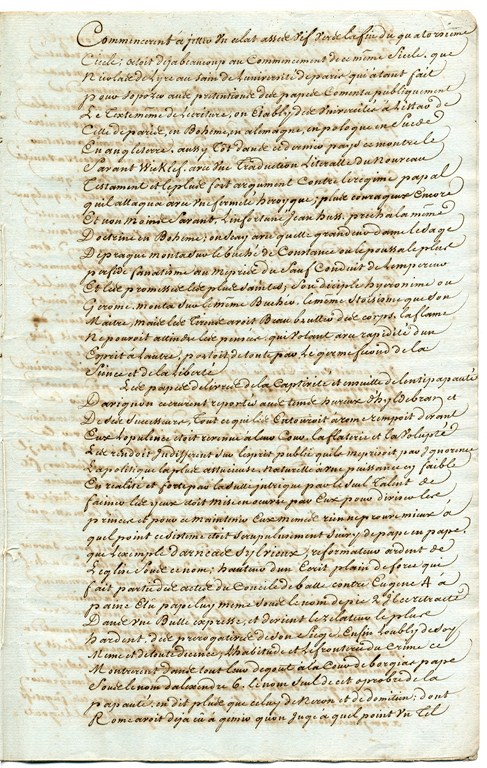 Commencerent a jetter Un eclat assés Vif Vers la fin du quatorzieme
Ciecle; cetoit deja beaucoup au Commencement de ce même Siecle, que
Nicolas de Lyre au sain de Luniversité de paris qu'a tant fait
pour soposer aux pretentions des papes Comenta publiquement
Le Texte meme de lecriture, on Etablÿ des Universités a Linstar de
Celle de paris, en Boheme, en alemagne, en pologne en Suede
En angleterre. aussy Tot dans ce dernier pays ce montre le
Savant Wiklef. avec Une Traduction Literalle du Nouveau
Testament et le plus fort argument Contre le regime papal
quil attaqua avec Une fermeté heroyque; plus courageux Encore
Et non Moins Savant, Linfortuné Jean huss. precha la même
Doctrine en Boheme; on scay avec quelle grandeur dame le Sage
De prague monta sur le buché de Constance ou le poussa le plus
perfide fanatisme au mepris du Sauf Conduit de Lempereur
Et des promesses les plus Saintes; Son disciple hyeronime ou
Gerome. monta sur le même Bucher, le même stoïsisme que Son
Maitre, mais les Tirans avoit Beau bruller des corps, la flame
Ne pouvoit attindre les pensées, qui Volant avec rapidité dun
Esprit a Lautre, portoit de toute part le germe fecond de la
Sience et de la Liberté
Les papes delivrés de la Captivité et ensuitte de lentipapauté
Davignon ce crurent reportés aux tems hureux dhyldebrand et
De Ses Successeurs, Tout ce qui les Entouroit a rome rempoit devant
Eux Lopulence etoit revenue a leur Cour, la flaterie et la Volupté
Les rendoit Indifirent sur Lesprit public quils meprisoit par Ignorence
La politique la plus astucieuse Naturelle a une puissance sy faible
En realité et forte par la Sulle intrigue par le Sul Talent de
faciner les yeux etoit mise en œuvre par Eux pour diviser les
princes et pour ce maintenir Eux memes rien ne prouve mieux a
quel point ce sistème etoit scrupulusement Suivy de pape en pape.
que Lexemple d'aeneas Sylvieux, reformateur ardent de
Leglise Sous ce nom, hauteur dun Ecrit plain de force qui
fait partie des actes du Concile de balle contre Eugene 4 a
paine Elu pape luy même sous le nom de pie 2 il ce retracte
Dans Une Bulle expresse, et devient le zelateur le plus
hardent, des prerogatives de Son Siege, Enfin Loubly de Soy
Même et de toute decence, Lhabitude et Leffronterie du crime ce
Montrerent dans tout leur degout a la Cour de borgias, pape
Sous le nom dalexendre 6. le nom Seul de cet oprobre de la
papauté, en dit plus que celuy de Neron et de domitien; dont
Rome avoit déja eû a gemir quon Juge a quel point Un Tel